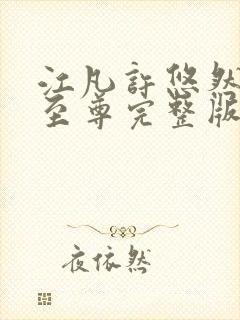 江凡許悠然
至尊完整版
夜依然